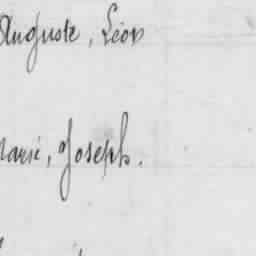 Auguste, Léon
Marie, Joseph.